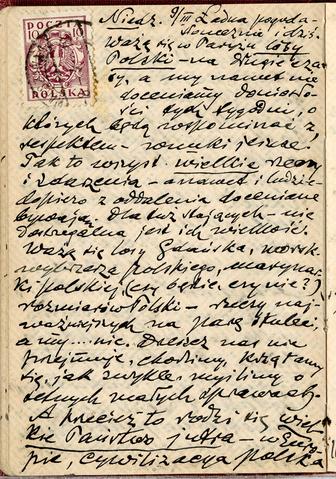 POCZTA
10 10
POLSKA
Niedz. 9/III Ładna pogoda
słonecznie i dziś
ważą się w Paryżu losy
Polski – na długie cza
sy, a my nawet nie
doceniamy doniosło
ści tych tygodni, o
których będą wspominać z
respektem
Tak to wszyst. wielkie rzeczy
i zdarzenia – a nawet i ludzie
dopiero z oddalenia doceniane
bywają. Dla tuż stojących – nie
dostrzegalna jest ich wielkość.
Ważą się losy Gdańska, morsk.
wybrzeża polskiego, marynar
ki polskiej (czy będzie, czy nie?)
rozmiarów Polski – rzeczy naj
ważniejszych na parę stuleci,
a my... nic. Deszcz nas nie
przejmuje, chodzimy, krzątamy
się, jak zwykle, myślimy o
setnych małych sprawach.
A przecież to rodzi się wiel
kie Państwo jutra – w Euro
pie, cywilizacja polska